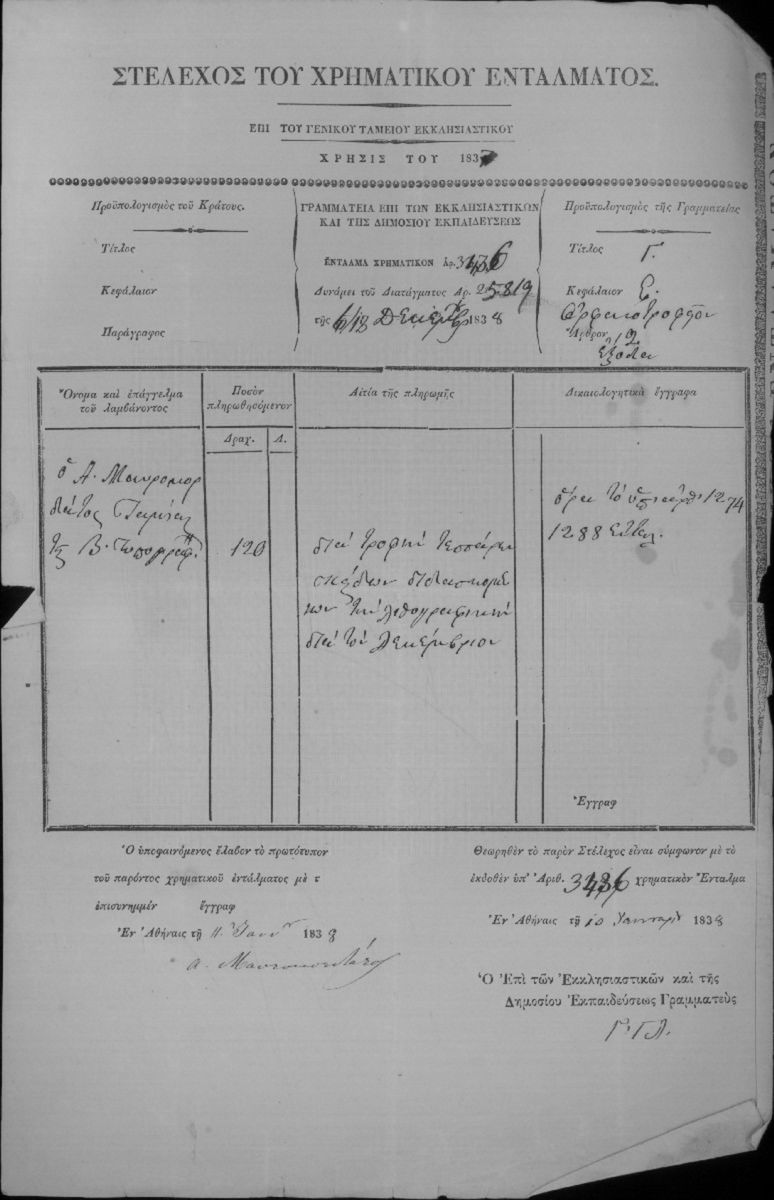 ΣΤΕΛΕΧΟΣ ΤΟΥ ΧΡΗΜΑΤΙΚΟΥ ΕΝΤΑΛΜΑΤΟΣ.
ΕΠΙ ΤΟΥ ΓΕΝΙΚΟΥ ΤΑΜΕΙΟΥ ΕΚΚΛΗΣΙΑΣΤΙΚΟΥ
ΧΡΗΣΙΣ ΤΟΥ 1837
Προϋπολογισμὸς τοῦ Κράτους.
Τίτλος
Κεφάλαιον
Παράγραφος
ΓΡΑΜΜΑΤΕΙΑ ΕΠΙ ΤΩΝ ΕΚΚΛΗΣΙΑΣΤΙΚΩΝ
ΚΑΙ ΤΗΣ ΔΗΜΟΣΙΟΥ ΕΚΠΑΙΔΕΥΣΕΩΣ
ΕΝΤΑΛΜΑ ΧΡΗΜΑΤΙΚΟΝ Ἀρ.
Δυνάμει τοῦ Διατάγματος Ἀρ. 25819
τῆς 6/18 Δεκεμβ 1838
Προϋπολογισμὸς τῆς Γραμματείας
Τίτλος Γ.
Κεφάλαιον Ε.
Ὀρφανοτροφεῖον
Ἄρθρον 2
Ἔξοδα
Ὄνομα καὶ ἐπάγγελμα
τοῦ λαμβάνοντος
Ποσὸν
πληρωθησόμενον
Δραχ. Λ.
Αἰτία τῆς πληρωμῆς
Δικαιολογητικὰ ἔγγραφα
ὁ Α. Μαυροκορ
δάτος Ταμίας
τῆς Β. Τυπογραφ.
120
διὰ τροφὴν τεσσάρων
παίδων διδασκομέ
νων τὴν λιθογραφικὴν
διὰ τὸν Δεκέμβριον
ὅρα τὸ ὑπ' ἀριθ 1274
1288 ενταλ.
Ἐγγραφ
Ὁ ὑποφαινόμενος ἔλαβον τὸ πρωτότυπον
τοῦ παρόντος χρηματικοῦ ἐντάλματος μὲ τ
ἐπισυνημμέν ἔγγραφ
Ἐν Ἀθήναις τῇ 11 Ἰαν 1838
Α. Μαυροκορδάτος
Θεωρηθὲν τὸ παρὸν Στέλεχος εἶναι σύμφωνον μὲ τὸ
ἐκδοθὲν ὑπ' Ἀριθ. χρηματικὸν Ἔνταλμα
Ἐν Ἀθήναις τῇ 10 Ἰανουαρ 1838
Ὁ Ἐπὶ τῶν Ἐκκλησιαστικῶν καὶ τῆς
Δημοσίου Ἐκπαιδεύσεως Γραμματεὺς